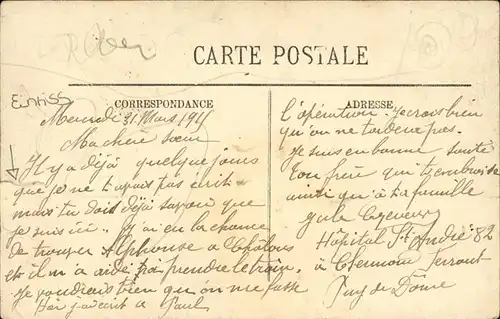 CARTE POSTALE
CORRESPONDANCE
ADRESSE
Mercredi 31 Mars 1915
Ma chère sœur
Il y a déjà quelque jours
que je ne t'avais pas écrit
mais tu dois déjà savoir que
je suis ici. J'ai eu la chance
de trouver Alphonse a Chalons
et il m'a aidé a prendre le train.
Je voudrais bien qu'on me fasse
Hier j'ai écrit a Paul
l'opération. Je crois bien
qu'on ne tardera pas.
Je suis en bonne santé
Ton frère qui t'embrasse
ainsi qu'a ta famille
Hôpital St André 82
a Clermont Ferrant
Puy de Dôme